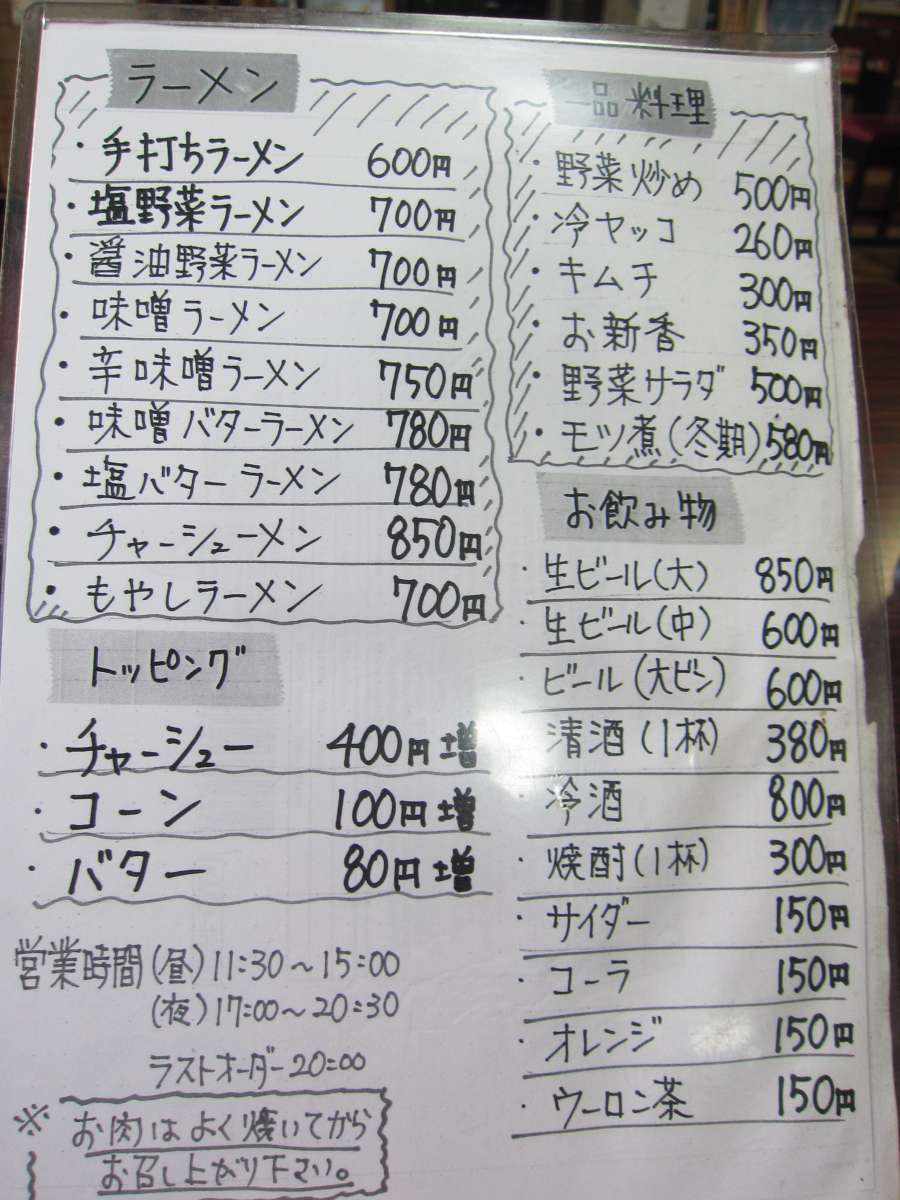 ラーメン
・手打ちラーメン 600円
・塩野菜ラーメン 700円
・醤油野菜ラーメン 700円
・味噌ラーメン 700円
・辛味噌ラーメン 750円
・味噌バターラーメン 780円
・塩バターラーメン 780円
・チャーシューメン 850円
・もやしラーメン 700円
トッピング
・チャーシュー 400円増
・コーン 100円増
・バター 80円増
営業時間(昼)11:30〜15:00
(夜)17:00〜20:30
ラストオーダー20:00
※お肉はよく焼いてから
お召し上がり下さい。
一品料理
・野菜炒め 500円
・冷ヤッコ 260円
・キムチ 300円
・お新香 350円
・野菜サラダ 500円
・モツ煮(冬期)580円
お飲み物
・生ビール(大) 850円
・生ビール(中) 600円
・ビール(大ビン) 600円
・清酒(1杯) 380円
・冷酒 800円
・焼酎(1杯) 300円
・サイダー 150円
・コーラ 150円
・オレンジ 150円
・ウーロン茶 150円